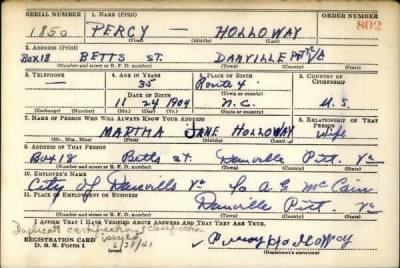 SERIAL NUMBER 1. NAME (Print) ORDER NUMBER
1850 PERCY — HOLLOWAY 802
(First) (Middle) (Last)
2. ADDRESS (Print)
Box 18 BETTS ST. DANVILLE PITT VA
(Number and street or R. F. D. number) (Town) (County) (State)
3. TELEPHONE 4. AGE IN YEARS 5. PLACE OF BIRTH 6. COUNTRY OF CITIZENSHIP
— 35 Route 4.
DATE OF BIRTH (Town or county)
11 24 1904 N.C. U.S.
(Exchange) (Number) (Mo.) (Day) (Yr.) (State or country)
7. NAME OF PERSON WHO WILL ALWAYS KNOW YOUR ADDRESS 8. RELATIONSHIP OF THAT PERSON
MARTHA JANE HOLLOWAY Wife
(Mr., Mrs., Miss) (First) (Middle) (Last)
9. ADDRESS OF THAT PERSON
Box 18 Betts St. Danville Pitt. Va
(Number and street or R. F. D. number) (Town) (County) (State)
10. EMPLOYER'S NAME
City of Danville Va
11. PLACE OF EMPLOYMENT OR BUSINESS
Danville Pitt. Va
(Number and street or R. F. D. number) (Town) (County) (State)
I AFFIRM THAT I HAVE VERIFIED ABOVE ANSWERS AND THAT THEY ARE TRUE.
Duplicate certification + classification
issued
REGISTRATION CARD 6/28/41 Percy Holloway
D. S. S. FORM 1 (Registrant's signature)